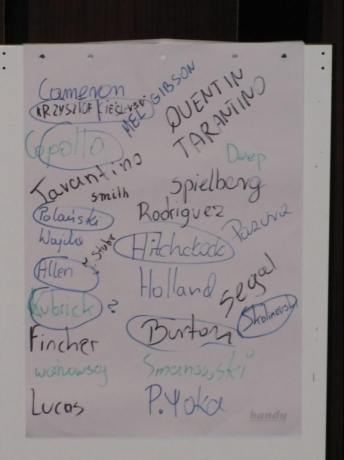 Cameron
KRZYSZTOF
MEL GIBSON
QUENTIN
TARANTINO
Coppolla
Tarantino
smith
Deep
Spielberg
Polański
Rodriguez
Wajda
Stuhr
Pazura
Hitchcock
Allen
Holland
Segal
Kubrick ?
Skolimowski
Burton
Fincher
Smarzowski
wachowscy
Lucas
P. Yoka
handy